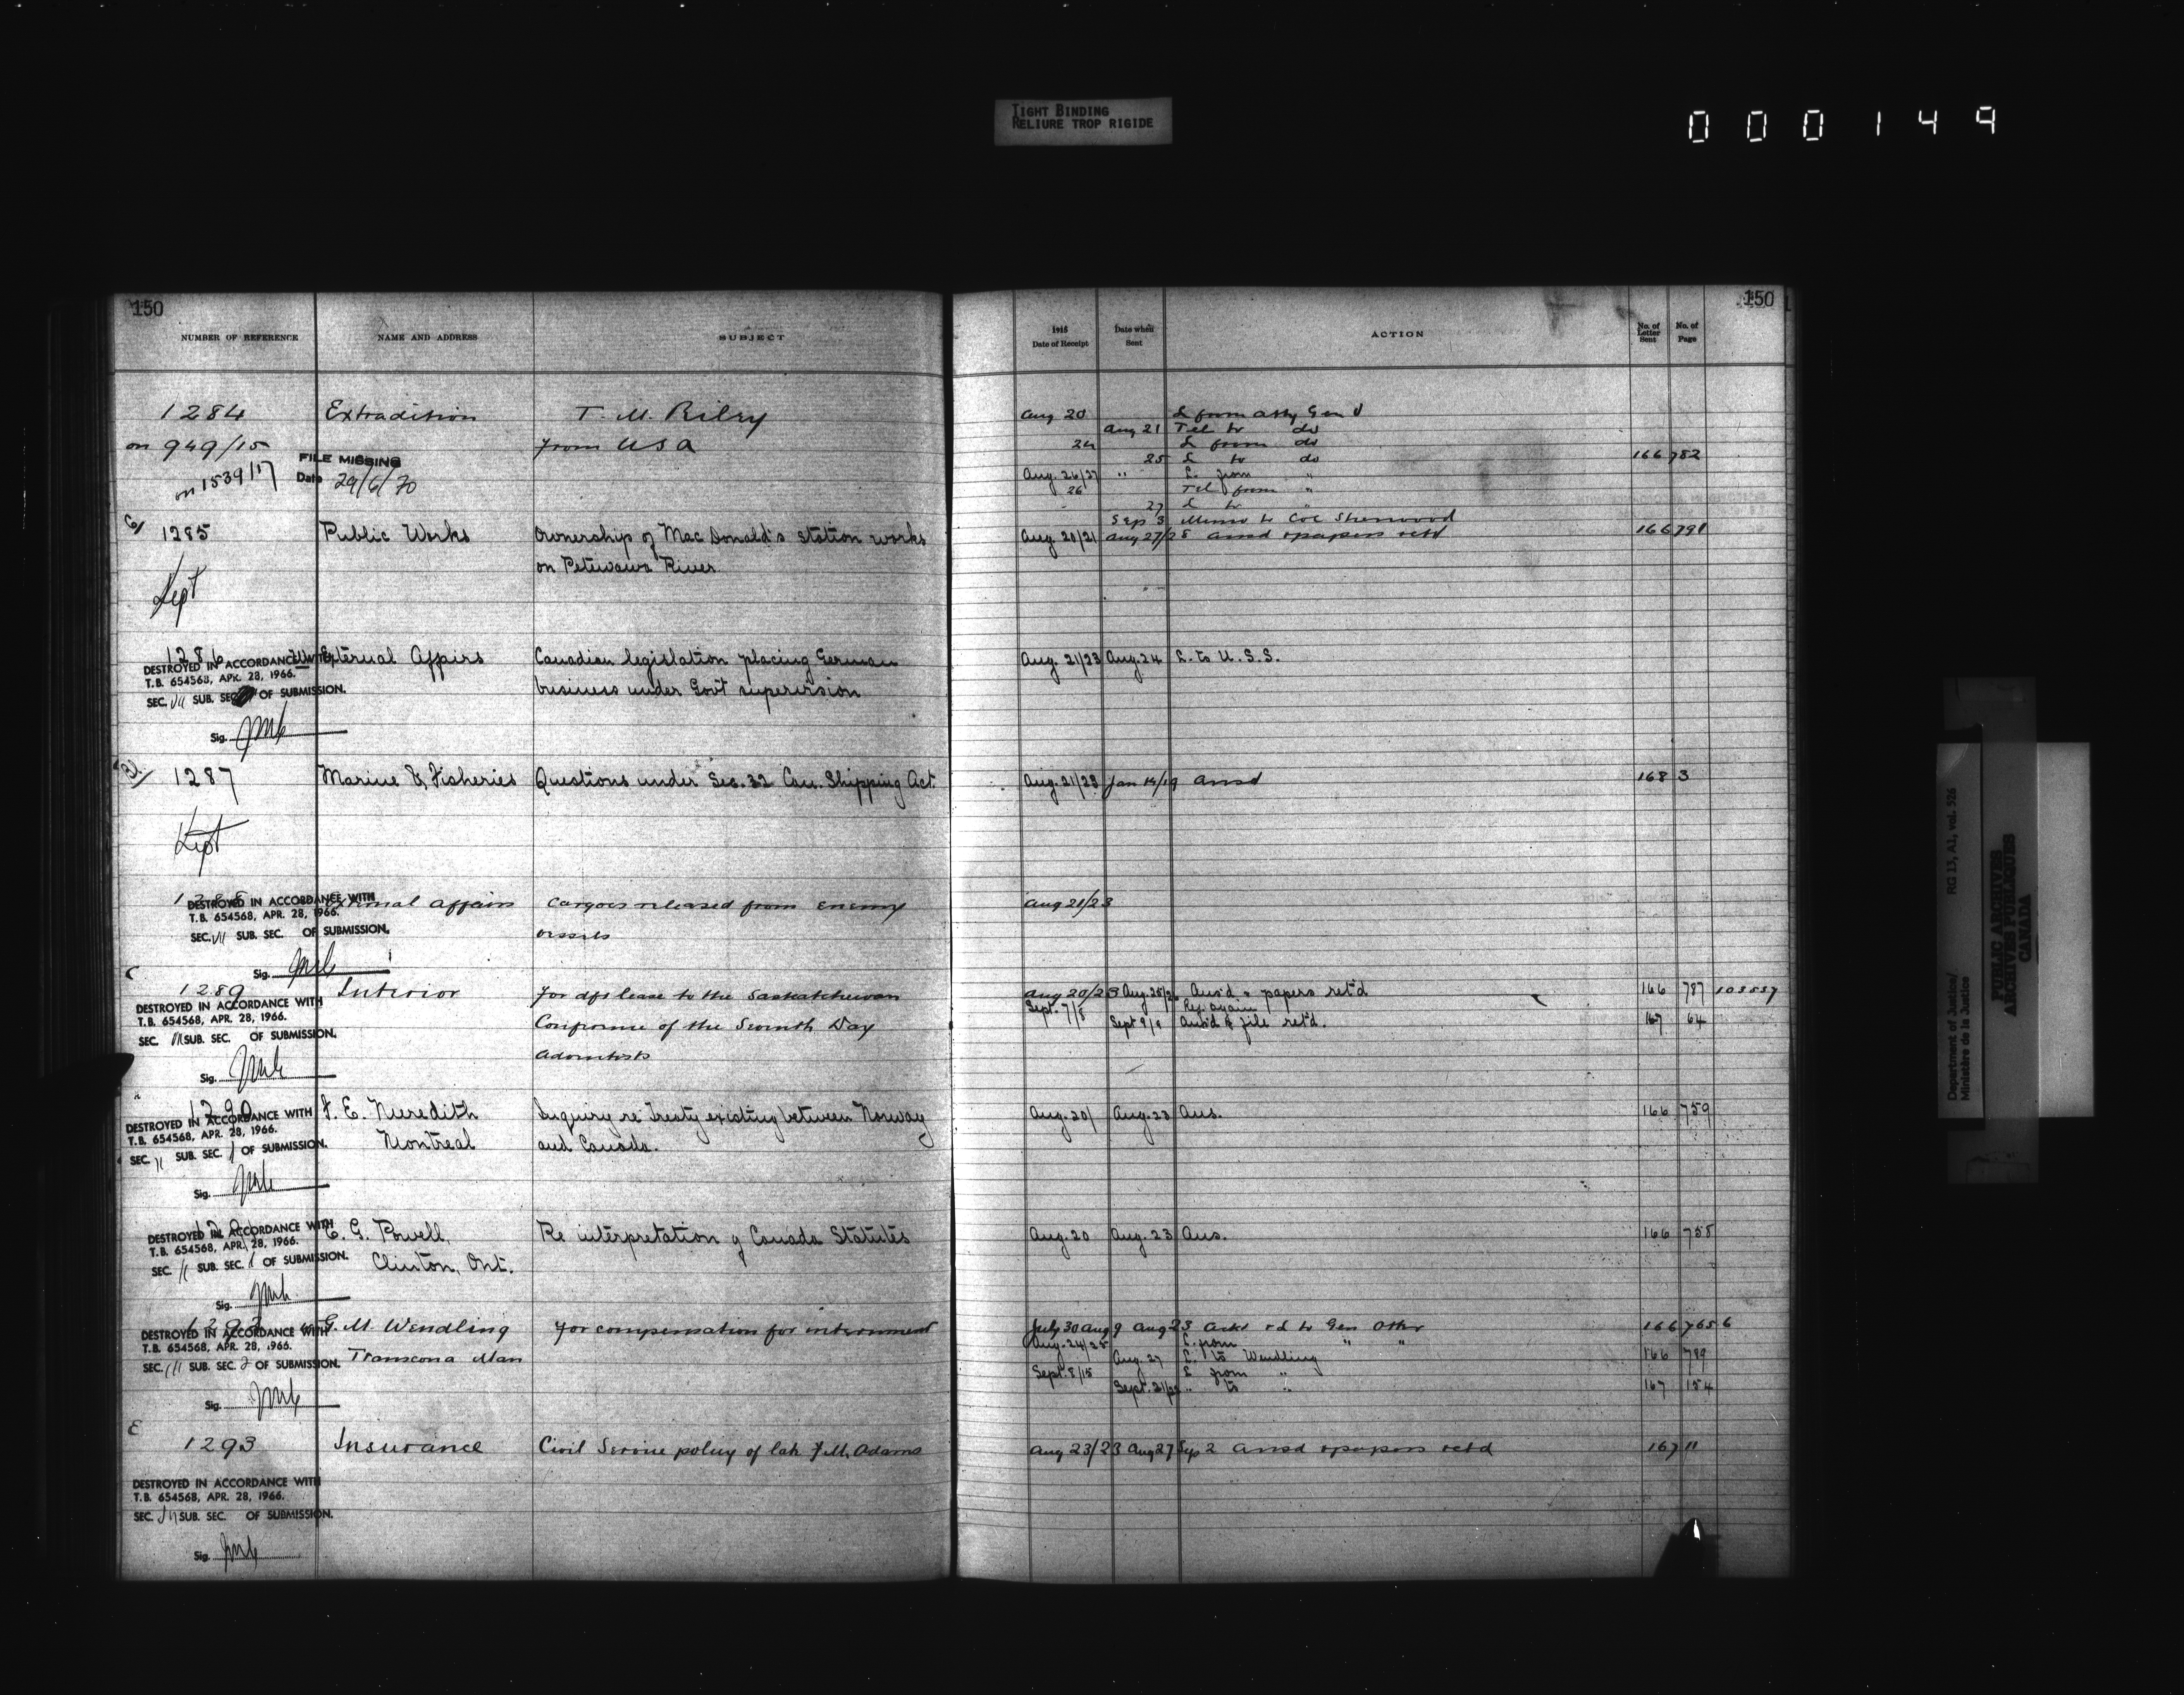 TIGHT BINDING
RELIURE TROP RIGIDE
000149
150
NUMBER OF REFERENCE NAME AND ADDRESS SUBJECT
1284 Extradition T. M. Riley
on 949/15 from USA
FILE MISSING
on 1539/17 Date 29/6/70
1285 Public Works Ownership of MacDonald's station works
on Petawawa River
Kept
1286 External Affairs Canadian legislation placing German
DESTROYED IN ACCORDANCE WITH
T.B. 654568, APR. 28, 1966.
business under Govt supervision
SEC. VII SUB. SEC. OF SUBMISSION.
Sig.
1287 Marine & Fisheries Questions under Sec. 32 Can. Shipping Act.
Kept
1288 External Affairs Cargoes released from enemy
DESTROYED IN ACCORDANCE WITH
T.B. 654568, APR. 28, 1966.
vessels
SEC. VII SUB. SEC. OF SUBMISSION.
Sig.
1289 Interior For dft lease to the Saskatchewan
DESTROYED IN ACCORDANCE WITH
T.B. 654568, APR. 28, 1966.
Conference of the Seventh Day
SEC. SUB. SEC. OF SUBMISSION.
Adventists
Sig.
1290 F. E. Meredith Inquiry re Treaty existing between Norway
DESTROYED IN ACCORDANCE WITH
T.B. 654568, APR. 28, 1966.
Montreal and Canada.
SEC. II SUB. SEC. 1 OF SUBMISSION.
Sig.
G. Powell, Re interpretation of Canada Statutes
DESTROYED IN ACCORDANCE WITH
T.B. 654568, APR. 28, 1966.
Clinton, Ont.
SEC. II SUB. SEC. 1 OF SUBMISSION.
Sig.
1292 G. M. Wendling For compensation for internment
DESTROYED IN ACCORDANCE WITH
T.B. 654568, APR. 28, 1966.
Transcona Man
SEC. III SUB. SEC. 2 OF SUBMISSION.
Sig.
1293 Insurance Civil Service policy of late F. M. Adams
DESTROYED IN ACCORDANCE WITH
T.B. 654568, APR. 28, 1966.
SEC. SUB. SEC. OF SUBMISSION.
Sig.
150
1915 Date of Receipt Date when Sent ACTION No. of Letter Sent No. of Page
Aug 20 L from Atty Gen'l
Aug 21 Tel to do
24 L from do
25 L to do 166 782
Aug. 26/27 " L. from "
26 Tel from "
27 L to "
Sep 3 Memo to Col Sherwood
Aug. 20/21 Aug 27/28 ansd & papers retd 166 791
Aug. 21/23 Aug. 24 L. to U.S.S.
Aug. 21/23 Jan 14/19 Ansd 168 3
Aug 21/23
Aug 20/23 Aug. 25/26 Ans'd & papers ret'd 166 787 103537
Sept. 7/8 Rec. again
Sept 9/9 Ans'd & file ret'd. 167 64
Aug. 20/ Aug. 23 Ans. 166 759
Aug. 20 Aug. 23 Ans. 166 758
July 30 Aug 9 Aug 23 Ackd rd to Gen Otter 166 765 6
Aug. 24/25 L. from " "
Aug. 27 L. to Wendling 166 789
Sept. 8/15 L from "
Sept. 21/22 " to " 167 154
Aug 23/23 Aug 27 Sep 2 Ansd & papers retd 167 11
Department of Justice/ RG 13, A1, vol. 526
Ministère de la Justice
PUBLIC ARCHIVES
ARCHIVES PUBLIQUES
CANADA